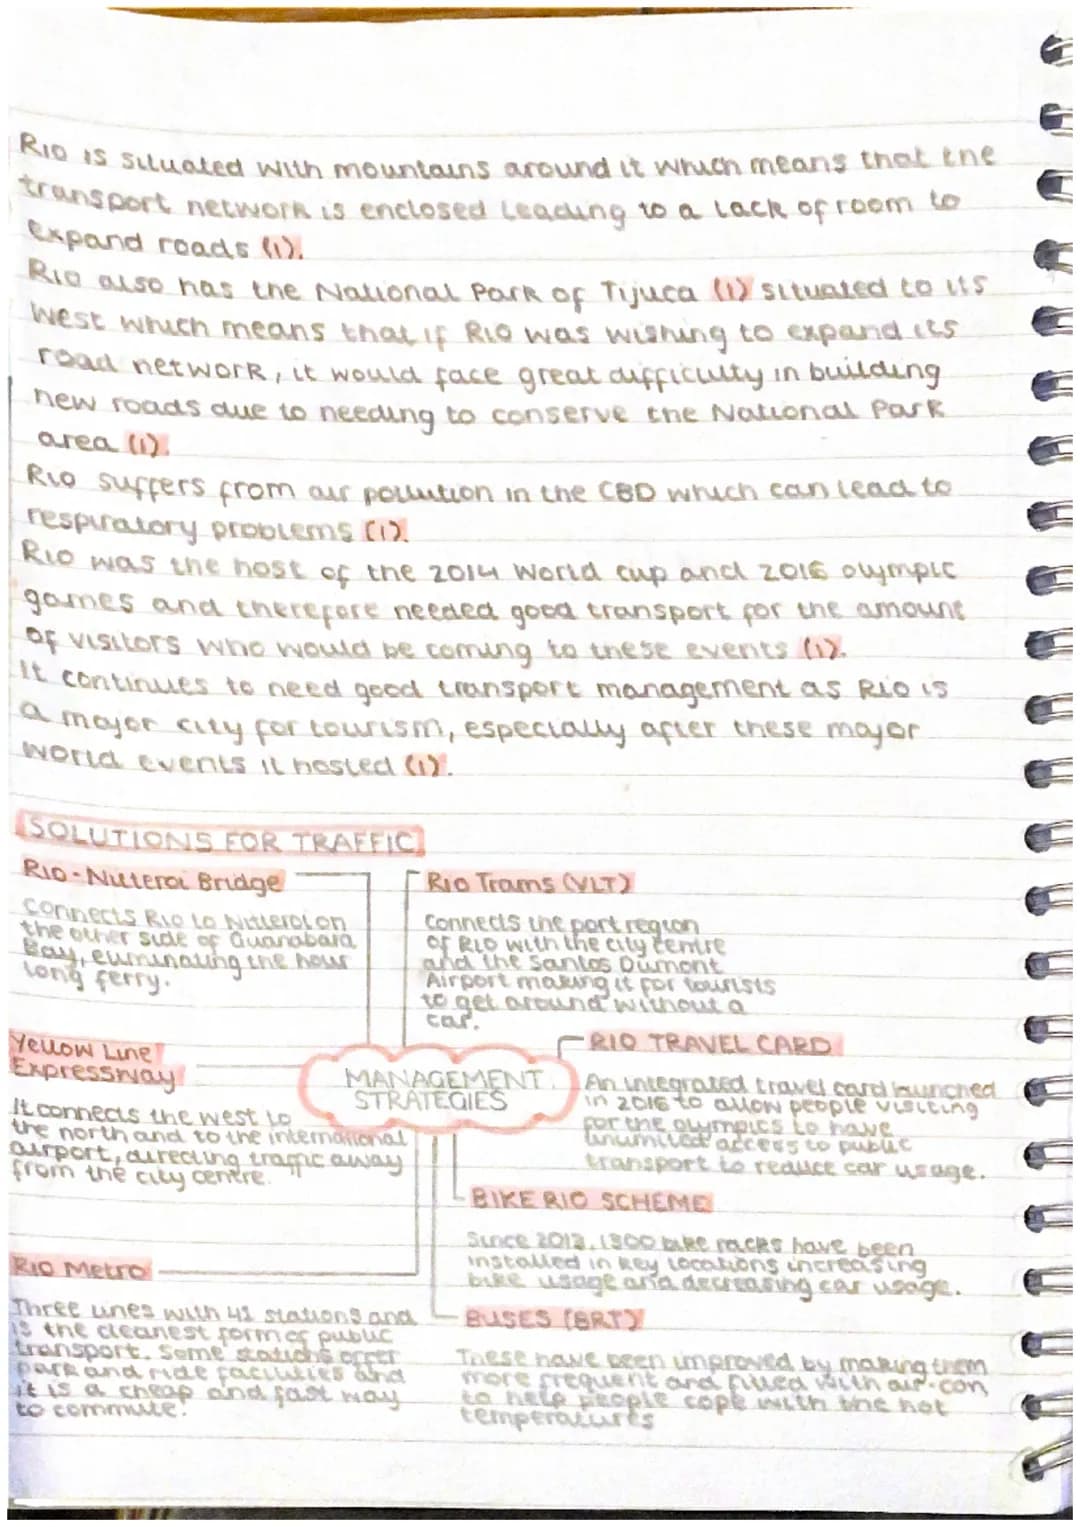 Rio is situated with mountains around it which means that the
transport network is enclosed leading to a lack of room to
expand roads (1).
Rio also has the National Park of Tijuca (1) situated to its
west which means that if Rio was wishing to expand its
road network, it would face great difficulty in building
new roads due to needing to conserve the National Park
area (1).
Rio suffers from air pollution in the CBD which can lead to
respiratory problems (1).
Rio was the host of the 2014 World cup and 2016 olympic
games and therefore needed good transport for the amount
of visitors who would be coming to these events (1).
It continues to need good transport management as Rio is
a major city for tourism, especially after these major
world events it hosted (1).
SOLUTIONS FOR TRAFFIC
Rio-Niteroi Bridge
Connects Rio to Niteroi on
the other side of Guanabara
Bay, eliminating the hour
long ferry.
Rio Trams (VLT)
Connects the port region
of Rio with the city centre
and the Santos Dumont
Airport making it for tourists
to get around without a
car.
Yellow Line
Expressway
It connects the west to
the north and to the international
airport, directing traffic away
from the city centre.
MANAGEMENT
STRATEGIES
RIO TRAVEL CARD
An integrated travel card launched
in 2016 to allow people visiting
for the olympics to have
unlimited access to public
transport to reduce car usage.
BIKE RIO SCHEME
Since 2012, 1300 bike racks have been
installed in key locations increasing
bike usage and decreasing car usage.
Rio Metro
Three lines with 41 stations and
is the cleanest form of public
transport. Some stations offer
park and ride facilities and
it is a cheap and fast way
to commute.
BUSES (BRT)
These have been improved by making them
more frequent and filled with air-con
to help people cope with the hot
temperatures